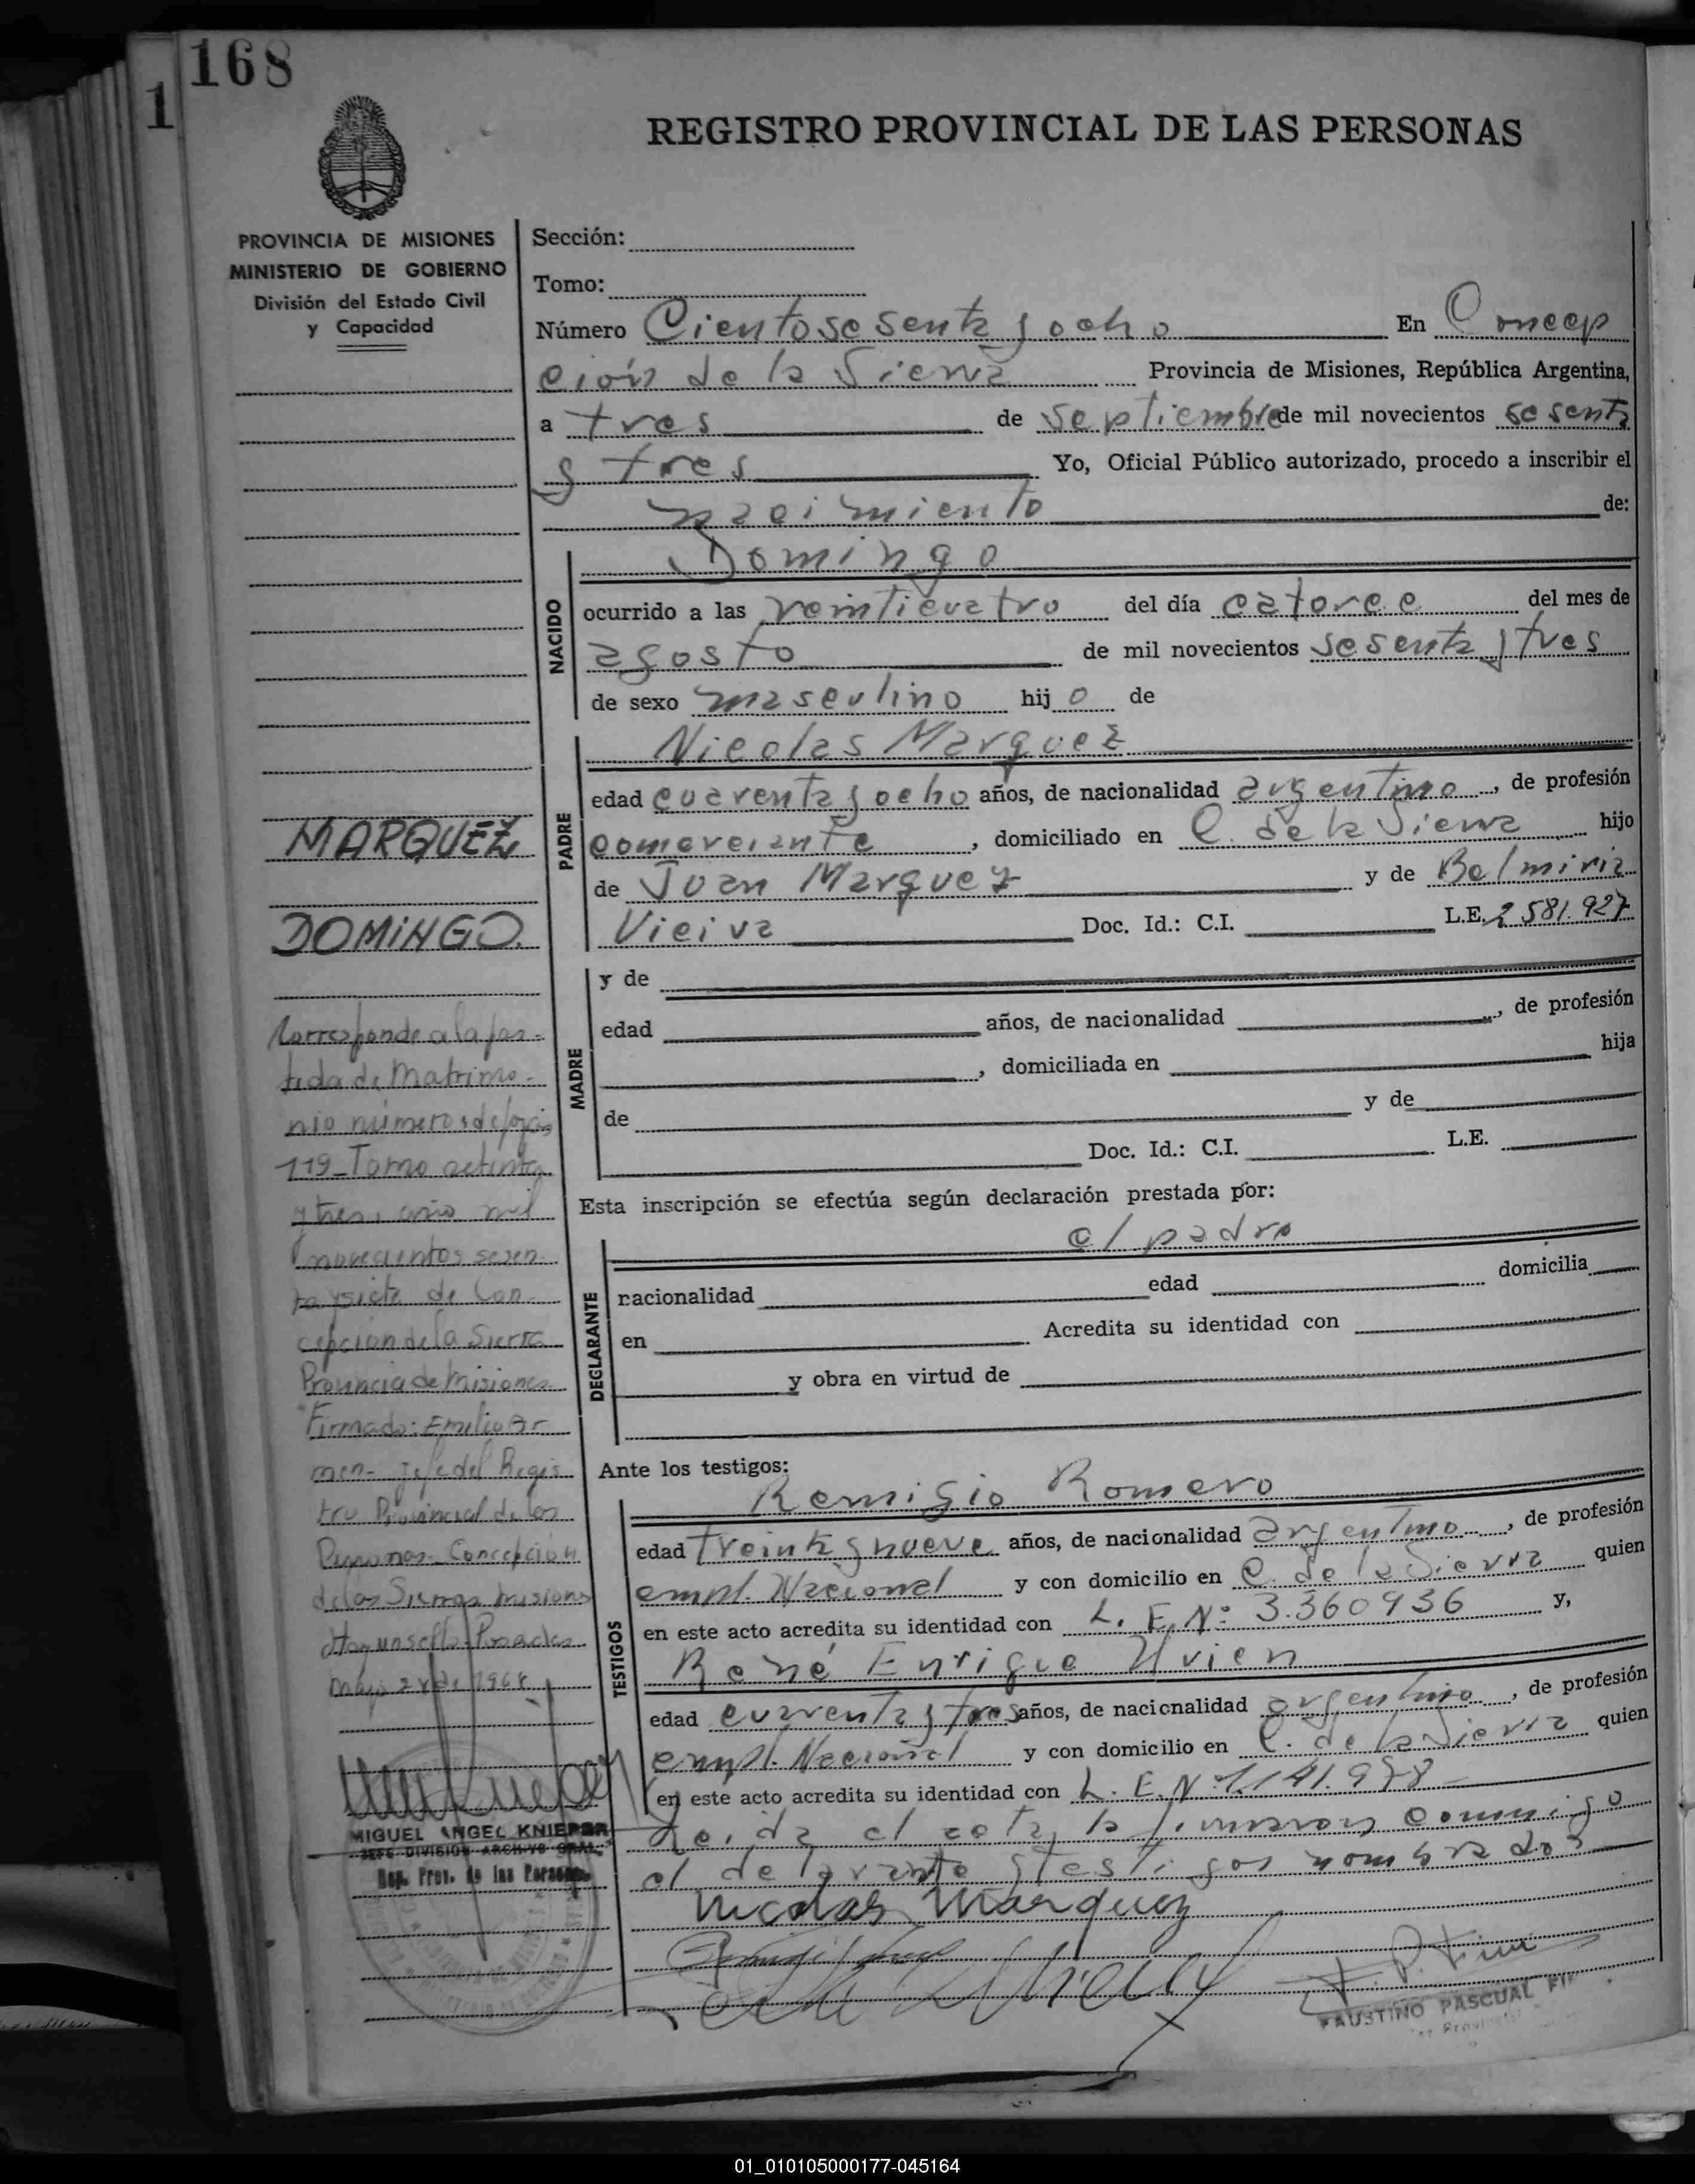 168
1
REGISTRO PROVINCIAL DE LAS PERSONAS
PROVINCIA DE MISIONES
MINISTERIO DE GOBIERNO
División del Estado Civil
y Capacidad
Sección:
Tomo:
Número Ciento sesenta y ocho En Concep
ción de la Sierra Provincia de Misiones, República Argentina,
a tres de septiembre de mil novecientos sesenta
y tres Yo, Oficial Público autorizado, procedo a inscribir el
nacimiento de:
NACIDO
Domingo
ocurrido a las veinticuatro del día catorce del mes de
agosto de mil novecientos sesenta y tres
de sexo masculino hijo de
PADRE
Nicolas Marquez
edad cuarenta y ocho años, de nacionalidad argentino, de profesión
comerciante, domiciliado en C. de la Sierra hijo
de Juan Marquez y de Belmiria
Vieira Doc. Id.: C.I. L.E. 2.581.927
MADRE
y de
edad años, de nacionalidad , de profesión
, domiciliada en hija
de y de
Doc. Id.: C.I. L.E.
Esta inscripción se efectúa según declaración prestada por:
DECLARANTE
el padre
nacionalidad edad domicilia
en Acredita su identidad con
y obra en virtud de
Ante los testigos:
TESTIGOS
Remigio Romero
edad treinta y nueve años, de nacionalidad argentino, de profesión
empl. Nacional y con domicilio en C. de la Sierra quien
en este acto acredita su identidad con L. E. Nº 3.360936 y,
René Enrique Urien
edad cuarenta y tres años, de nacionalidad argentino, de profesión
empl. Nacional y con domicilio en C. de la Sierra quien
en este acto acredita su identidad con L. E. Nº 1.141.978
Leida el acta, la firmaron conmigo
el declarante y testigos nombrados
Nicolas Marquez
F. P. Fini
FAUSTINO PASCUAL
MARQUEZ
DOMINGO.
Corresponde a la par-
tida de Matrimo-
nio número
119 - Tomo
y tres, año mil
novecientos sesen-
ta y siete de Con-
cepcion de la Sierra
Provincia de Misiones
Firmado: Emilio Ar
men- Jefe del Regis
tro Provincial de las
Personas- Concepción
de la Sierra Misiones
Hay un sello- Posadas
Mayo 24 de 1968
MIGUEL ANGEL KNIEPER
JEFE DIVISION ARCHIVO GRAL.
Reg. Prov. de las Personas
01_010105000177-045164